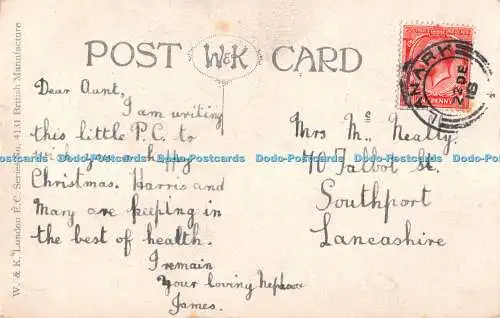 POST W&K CARD
W. & K. London E.C. Series No. 4131 British Manufacture
Dear Aunt,
I am writing
this little P.C. to
wish you a happy
Christmas. Harris and
Mary are keeping in
the best of health.
I remain
your loving Nephew
James.
Mrs Mc Nealty.
70 Talbot St.
Southport
Lancashire
NARK
22 DE
18
PENNY
Dodo-Postcards Dodo-Postcards Dodo-Postcards Dodo-Postcards Dodo-Postcards